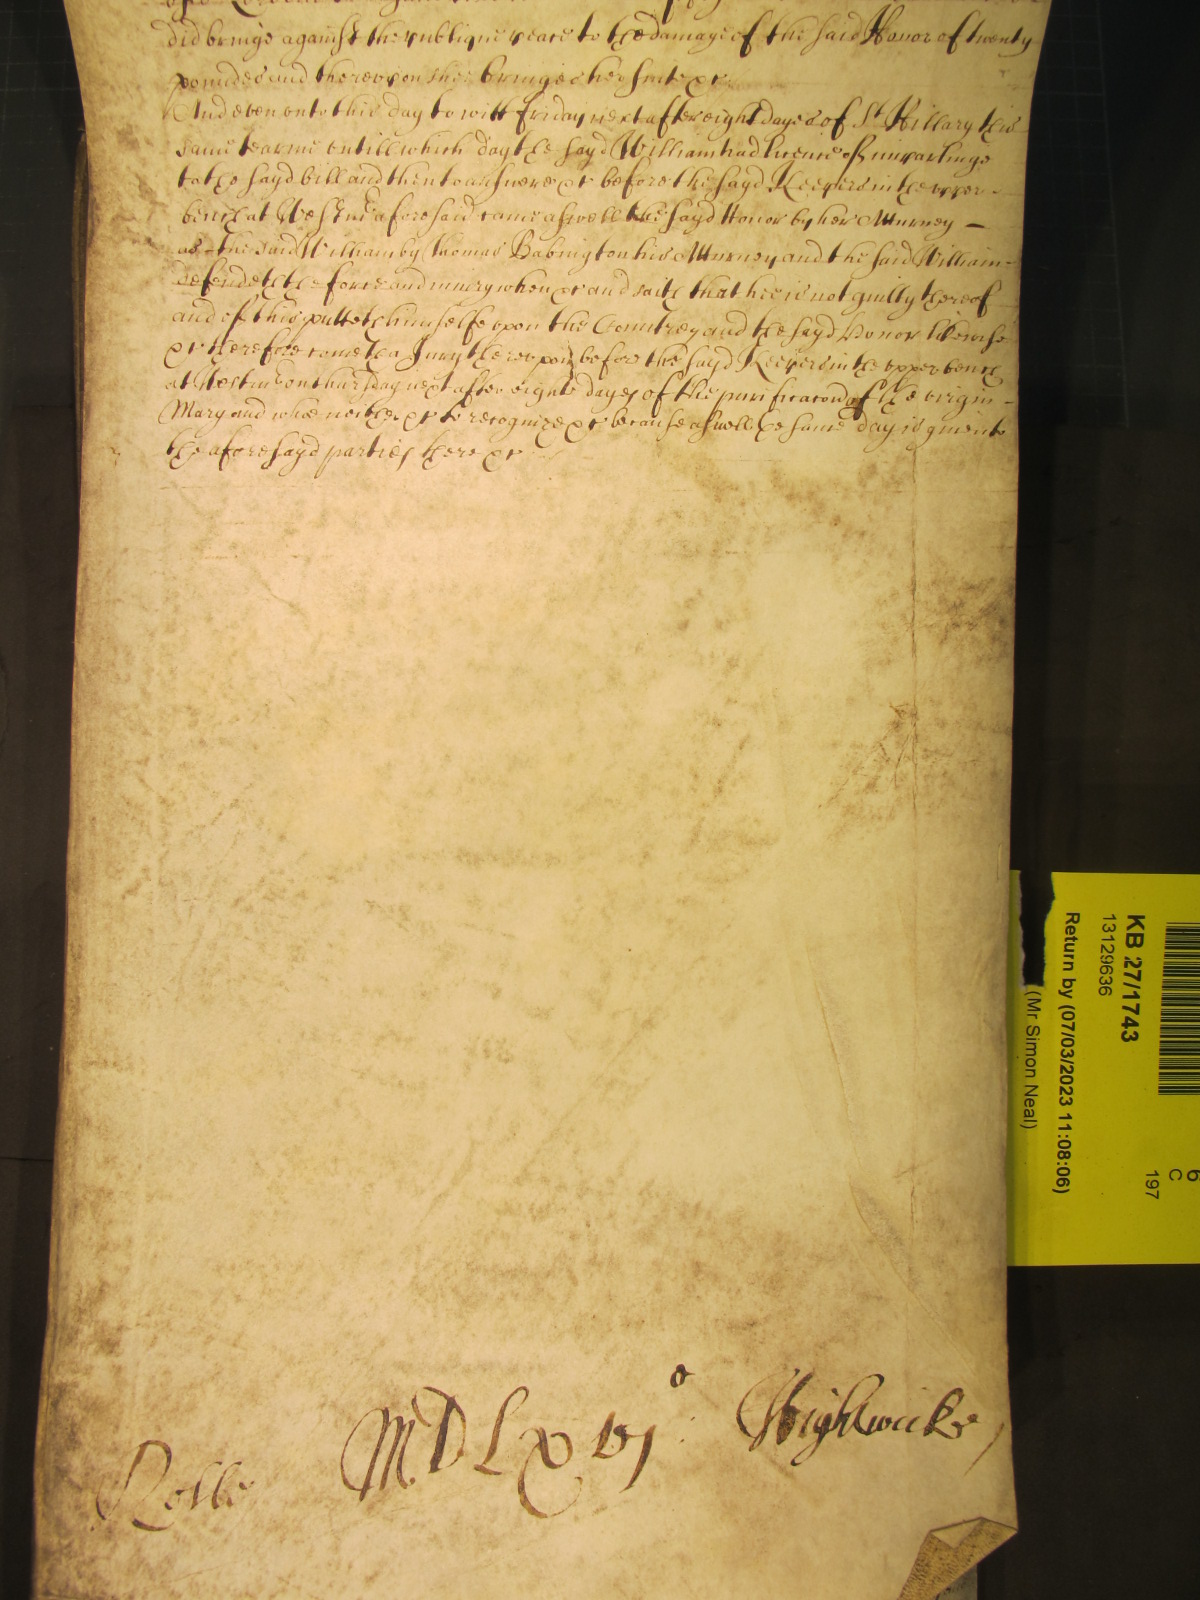 did bringe against the publique peace to the damage of the said Honor of twenty
poundes and thereupon shee bringes her suite &c
And even onto this day to witt friday next after eight dayes of St Hillary this
same tearme untill which day the sayd William had licence of imparlinge
to the sayd bill and then to answere &c before the sayd Keepers in the upper
bench at Westm̃ aforesaid came aswell the sayd Honor by her Atturney —
as the said William by Thomas Babington his Atturney and the said William
defendeth the force and iniury when &c and saith that hee is not guilty thereof
and of this putteth himselfe upon the Countrey and the sayd Honor likewise
&c therefore cometh a Jury thereupon before the sayd Keepers in the upper bench
at Westm̃ on thursday next after eight dayes of the purificatoñ of the virgin
Mary and whoe neither &c to recognize &c because aswell &c the same day is given to
the aforesayd parties there &c
Rolle MDLXVJ o Hightwicke
KB 27/1743
13129636
Return by (07/03/2023 11:08:06)
(Mr Simon Neal)
6
C
197